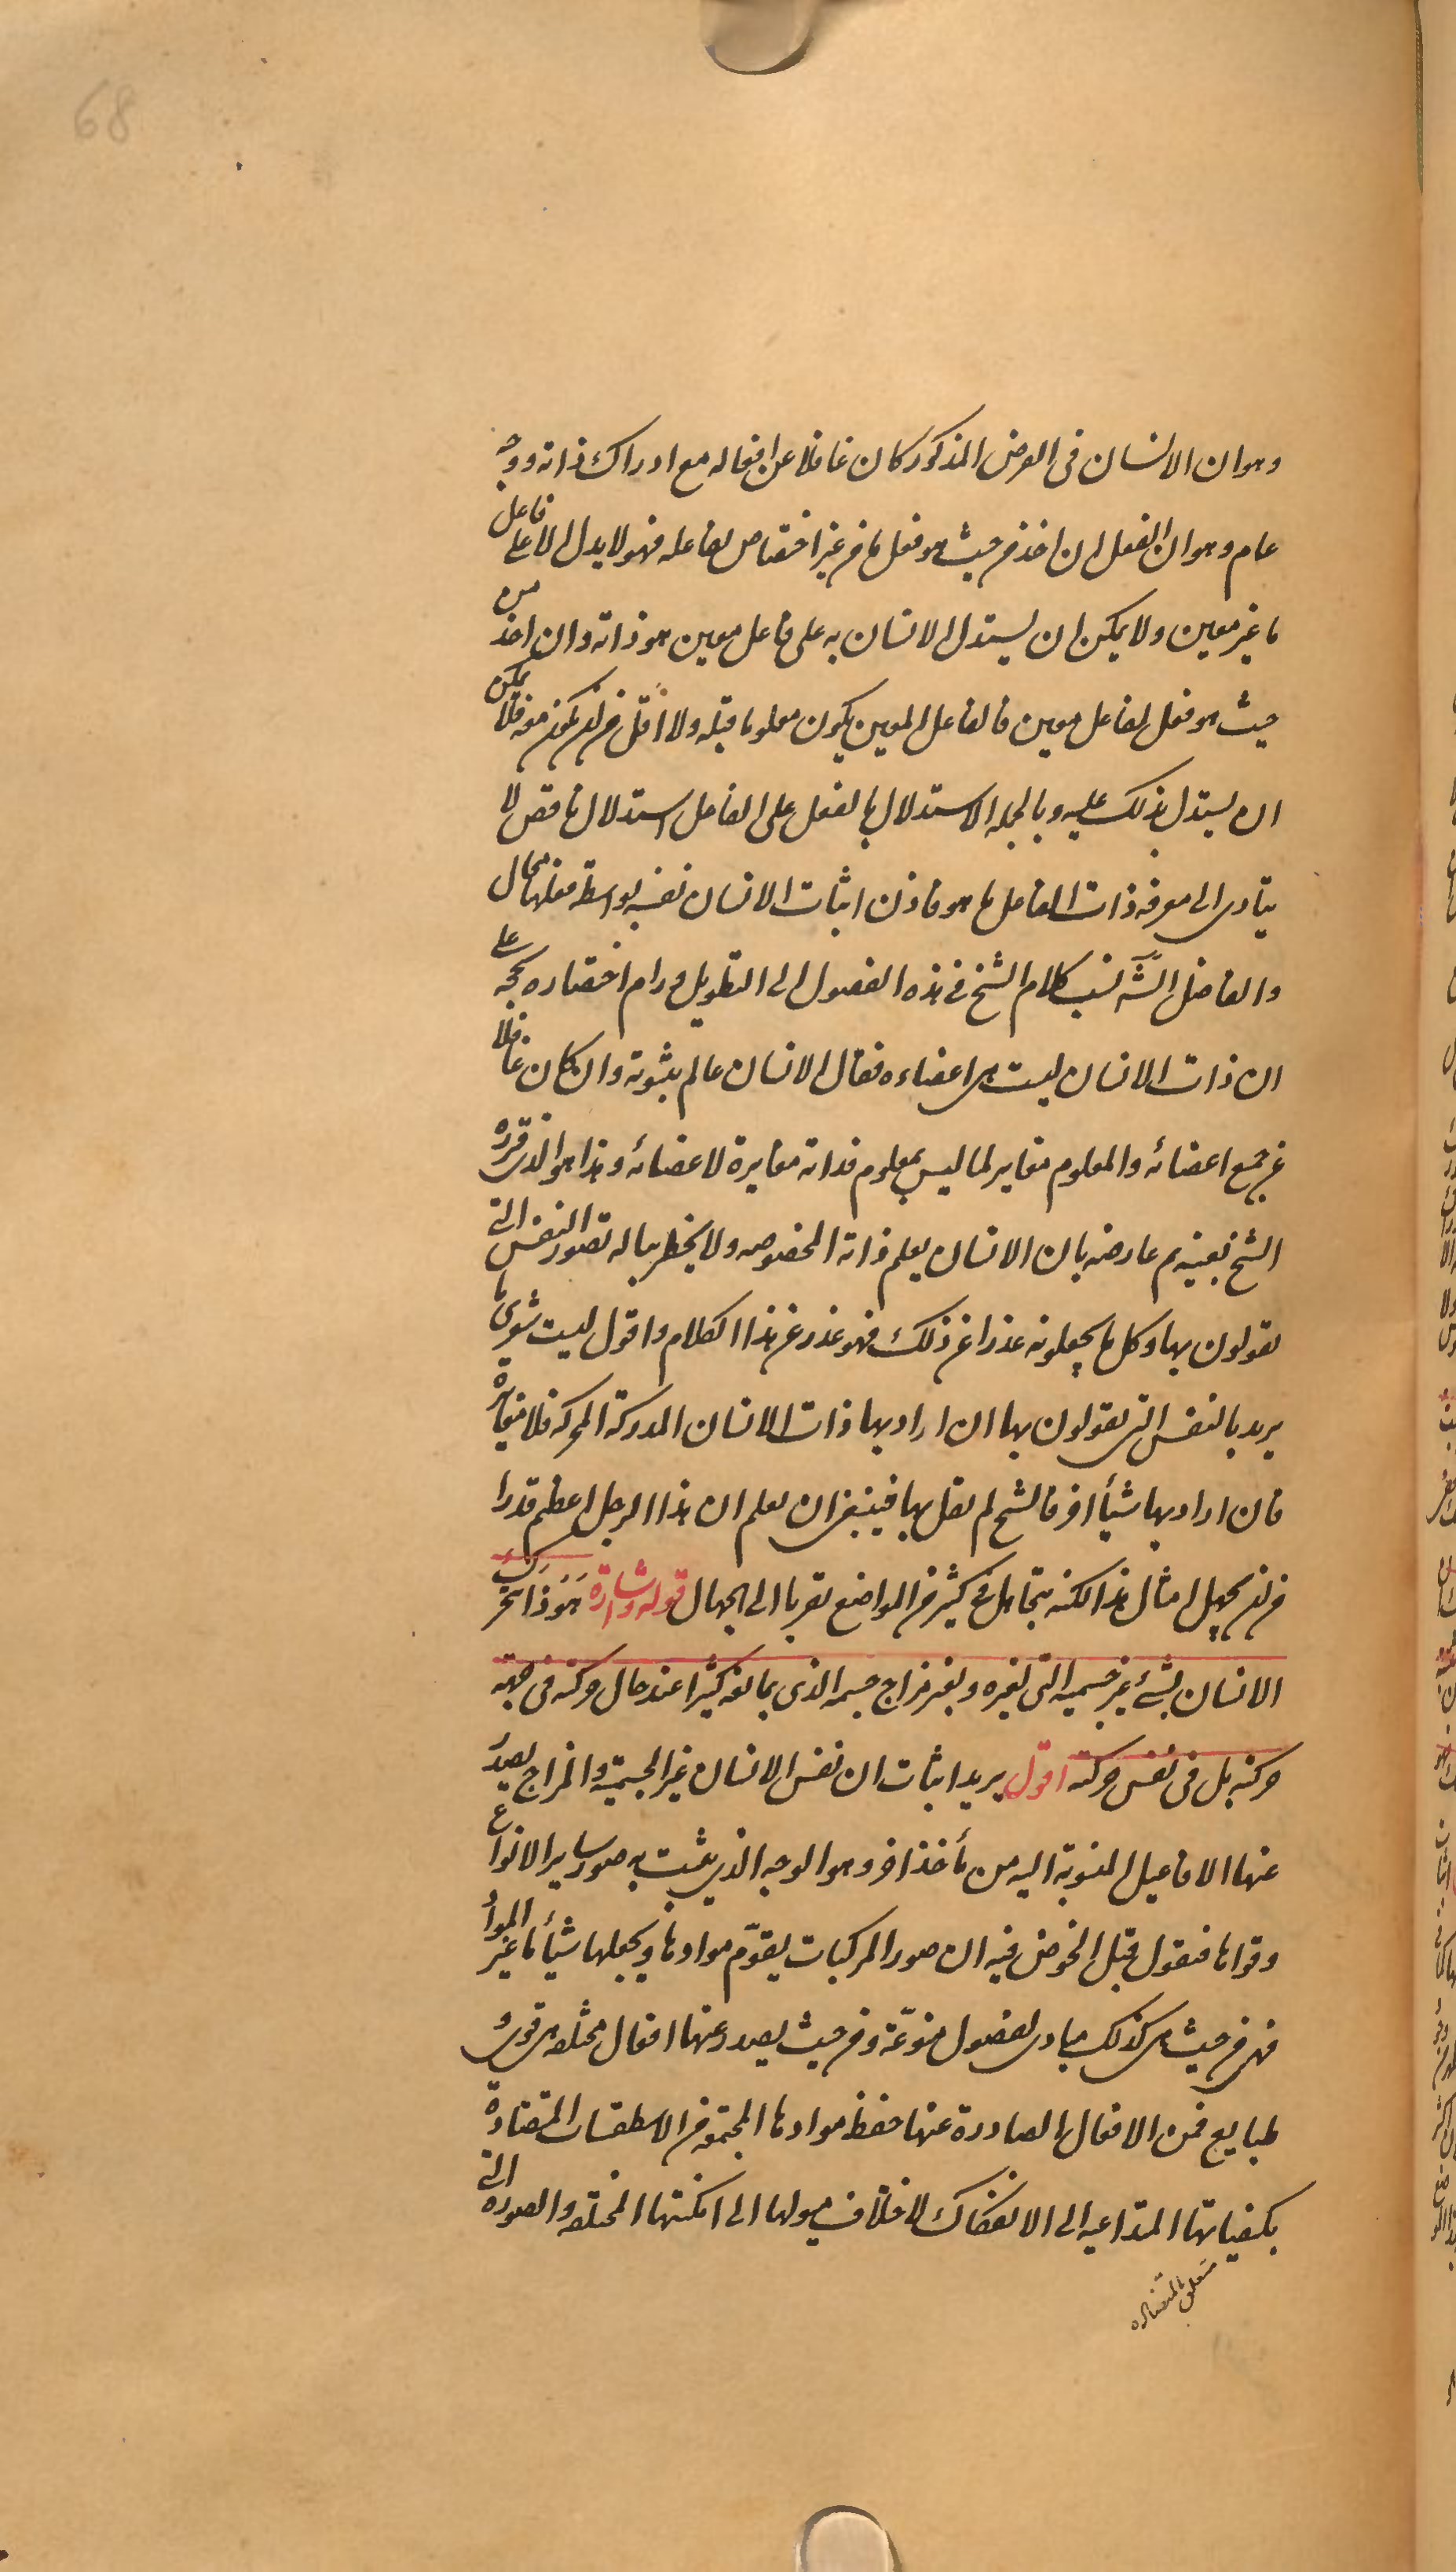 68
وهو ان الانسان فى الفرض المذكور كان غافلا عن افعاله مع ادراك ذاته ووجه
عام وهو ان الفعل ان اخذ من حيث هو فعل ما من غير اختصاص بفاعله فهو لا يدل الا على فاعل
ما غير معين ولا يمكن ان يستدل الانسان به على فاعل معين هو ذاته وان اخذ من
حيث هو فعل لفاعل معين فالفاعل المعين يكون معلوما قبله ولا اقل من ان يكون معه فلا يمكن
ان يستدل بذلك عليه وبالجمله الاستدلال بالفعل على الفاعل استدلال ناقص لا
يتادى الى معرفه ذات الفاعل ما هو فاذن اثبات الانسان نفسه بواسطة فعلها محال
والفاضل الش نسب كلام الشيخ فى هذه الفصول الى التطويل ورام اختصاره بحجه على
ان ذات الانسان ليست هى اعضاءه فقال الانسان عالم بثبوته وان كان غافلا
عن جميع اعضائه والمعلوم مغاير لما ليس بمعلوم فذاته مغايرة لاعضائه وهذا هو الذى قرره
الشيخ بعينه ثم عارضه بان الانسان يعلم ذاته المخصوصه ولا يخطر بباله تصور النفس التى
يقولون بها وكل ما يجعلونه عذرا عن ذلك فهو عذر عن هذا الكلام واقول ليت شعرى ما
يريد بالنفس التى يقولون بها ان اراد بها ذات الانسان المدركة المحركه فلا مغايرة
فان اراد بها شيأ اخر فالشيخ لم يقل بها فينبغى ان يعلم ان هذا الرجل اعظم قدرا
من ان يجهل امثال هذا لكنه يتجاهل فى كثير من المواضع تقربا الى الجهال قوله اشارة هو ذا يتحرك
الانسان بشئ غير جسميه التى لغيره وبغير مزاج جسمه الذى يمانعه كثيرا عند حال حركته فى جهة
حركته بل فى نفس حركته اقول يريد اثبات ان نفس الانسان غير الجسمية والمزاج يصدر
عنها الافاعيل المنسوبة اليه من مأخذ اخر وهو الوجه الذى يثبت به صور ساير الانواع
وقواها فنقول قبل الخوض فيه ان صور المركبات يقوّم موادها ويجعلها شيأ ما غير المواد
فهى من حيث هى كذلك مبادى لفصول منوّعة ومن حيث يصدر عنها افعال مختلفه هى قوى و
طبايع فمن الافعال الصادرة عنها حفظ موادها المجتمعه من الاسطقسات المتضادة
بكيفياتها المتداعيه الى الانفكاك لاختلاف ميولها الى امكنتها المختلفه والصوره التى
متعلق بالمتضاده